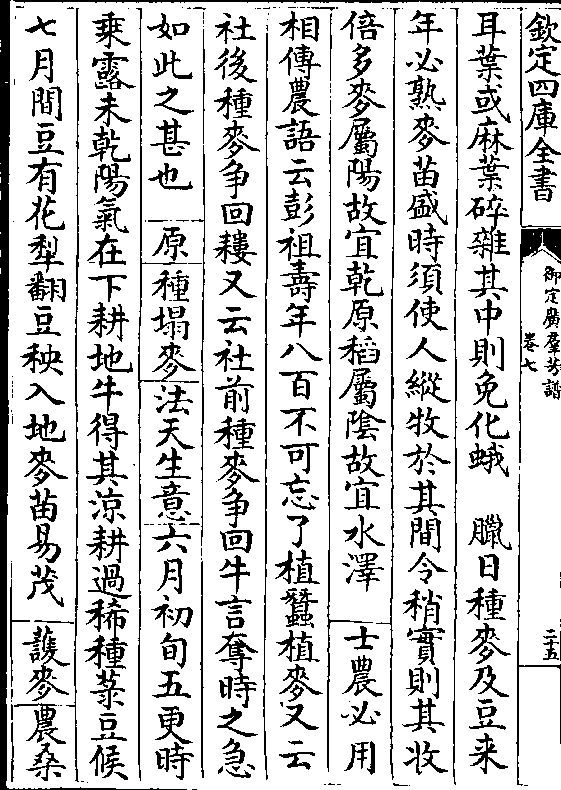 欽定四庫全書
御定廣羣芳譜
卷七
二十五
耳葉或麻葉碎雜其中則免化蛾　臘日種麥及豆来
年必熟麥苗盛時須使人縱牧於其間令稍實則其收
倍多麥屬陽故宜乾原稻屬陰故宜水澤　士農必用
相傳農語云彭祖壽年八百不可忘了植蠶植麥又云
社後種麥争回耬又云社前種麥争回牛言奪時之急
如此之甚也　原　種塌麥　法天生意　六月初旬五更時
乗露未乾陽氣在下耕地牛得其涼耕過稀種菉豆候
七月間豆有花犁翻豆秧入地麥苗易茂　䕶麥　農桑